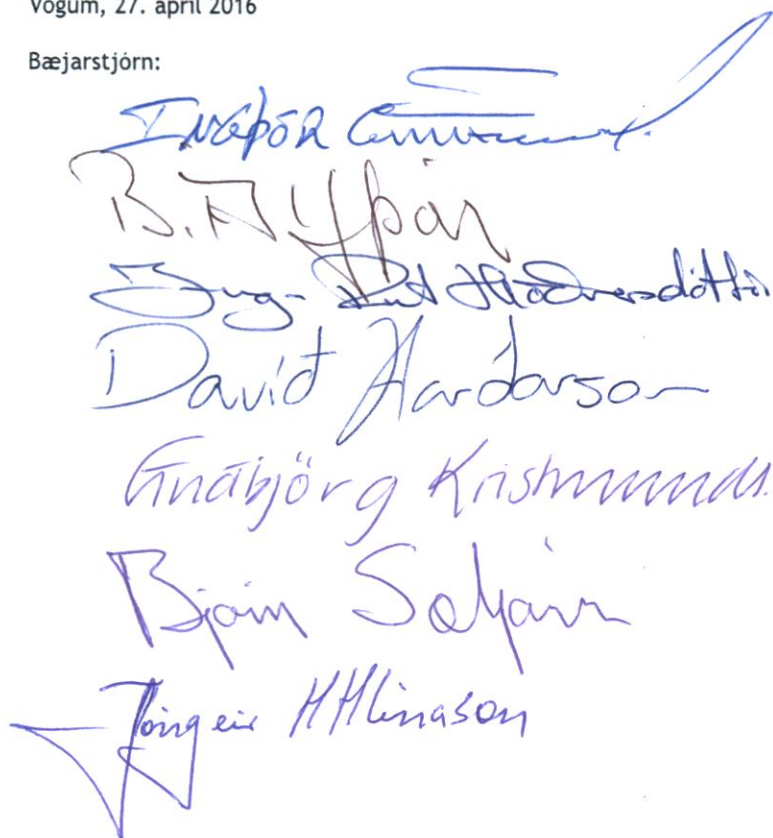 Vogum, 27. apríl 2016
Bæjarstjórn:
Ingþór
B. A
Inga Rut Hlöðversdóttir
Davíð Harðarson
Guðbjörg Kristmunds.
Björn Sæbjörn
Jóngeir H Hlinason